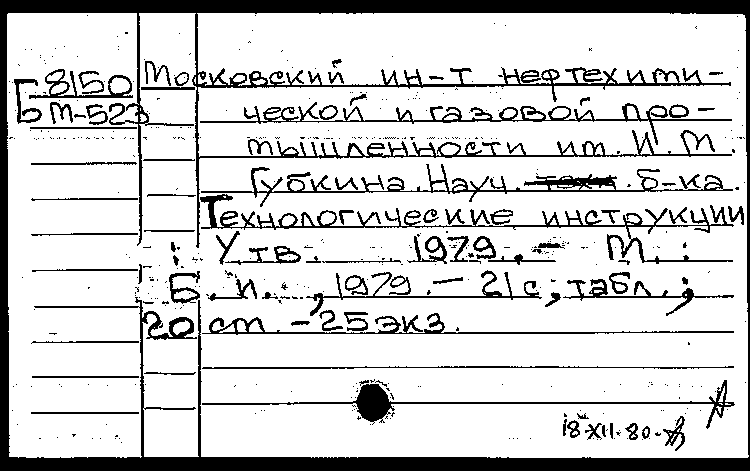 Б 8150 Московский ин-т нефтехими-
М-523 ческой и газовой про-
мышленности им. И. М.
Губкина. Науч. б-ка.
Технологические инструкции
: Утв. 1979. - М. :
Б. и. , 1979. - 21 с ; табл. ;
20 см. - 25 экз.
18 XII. 80.